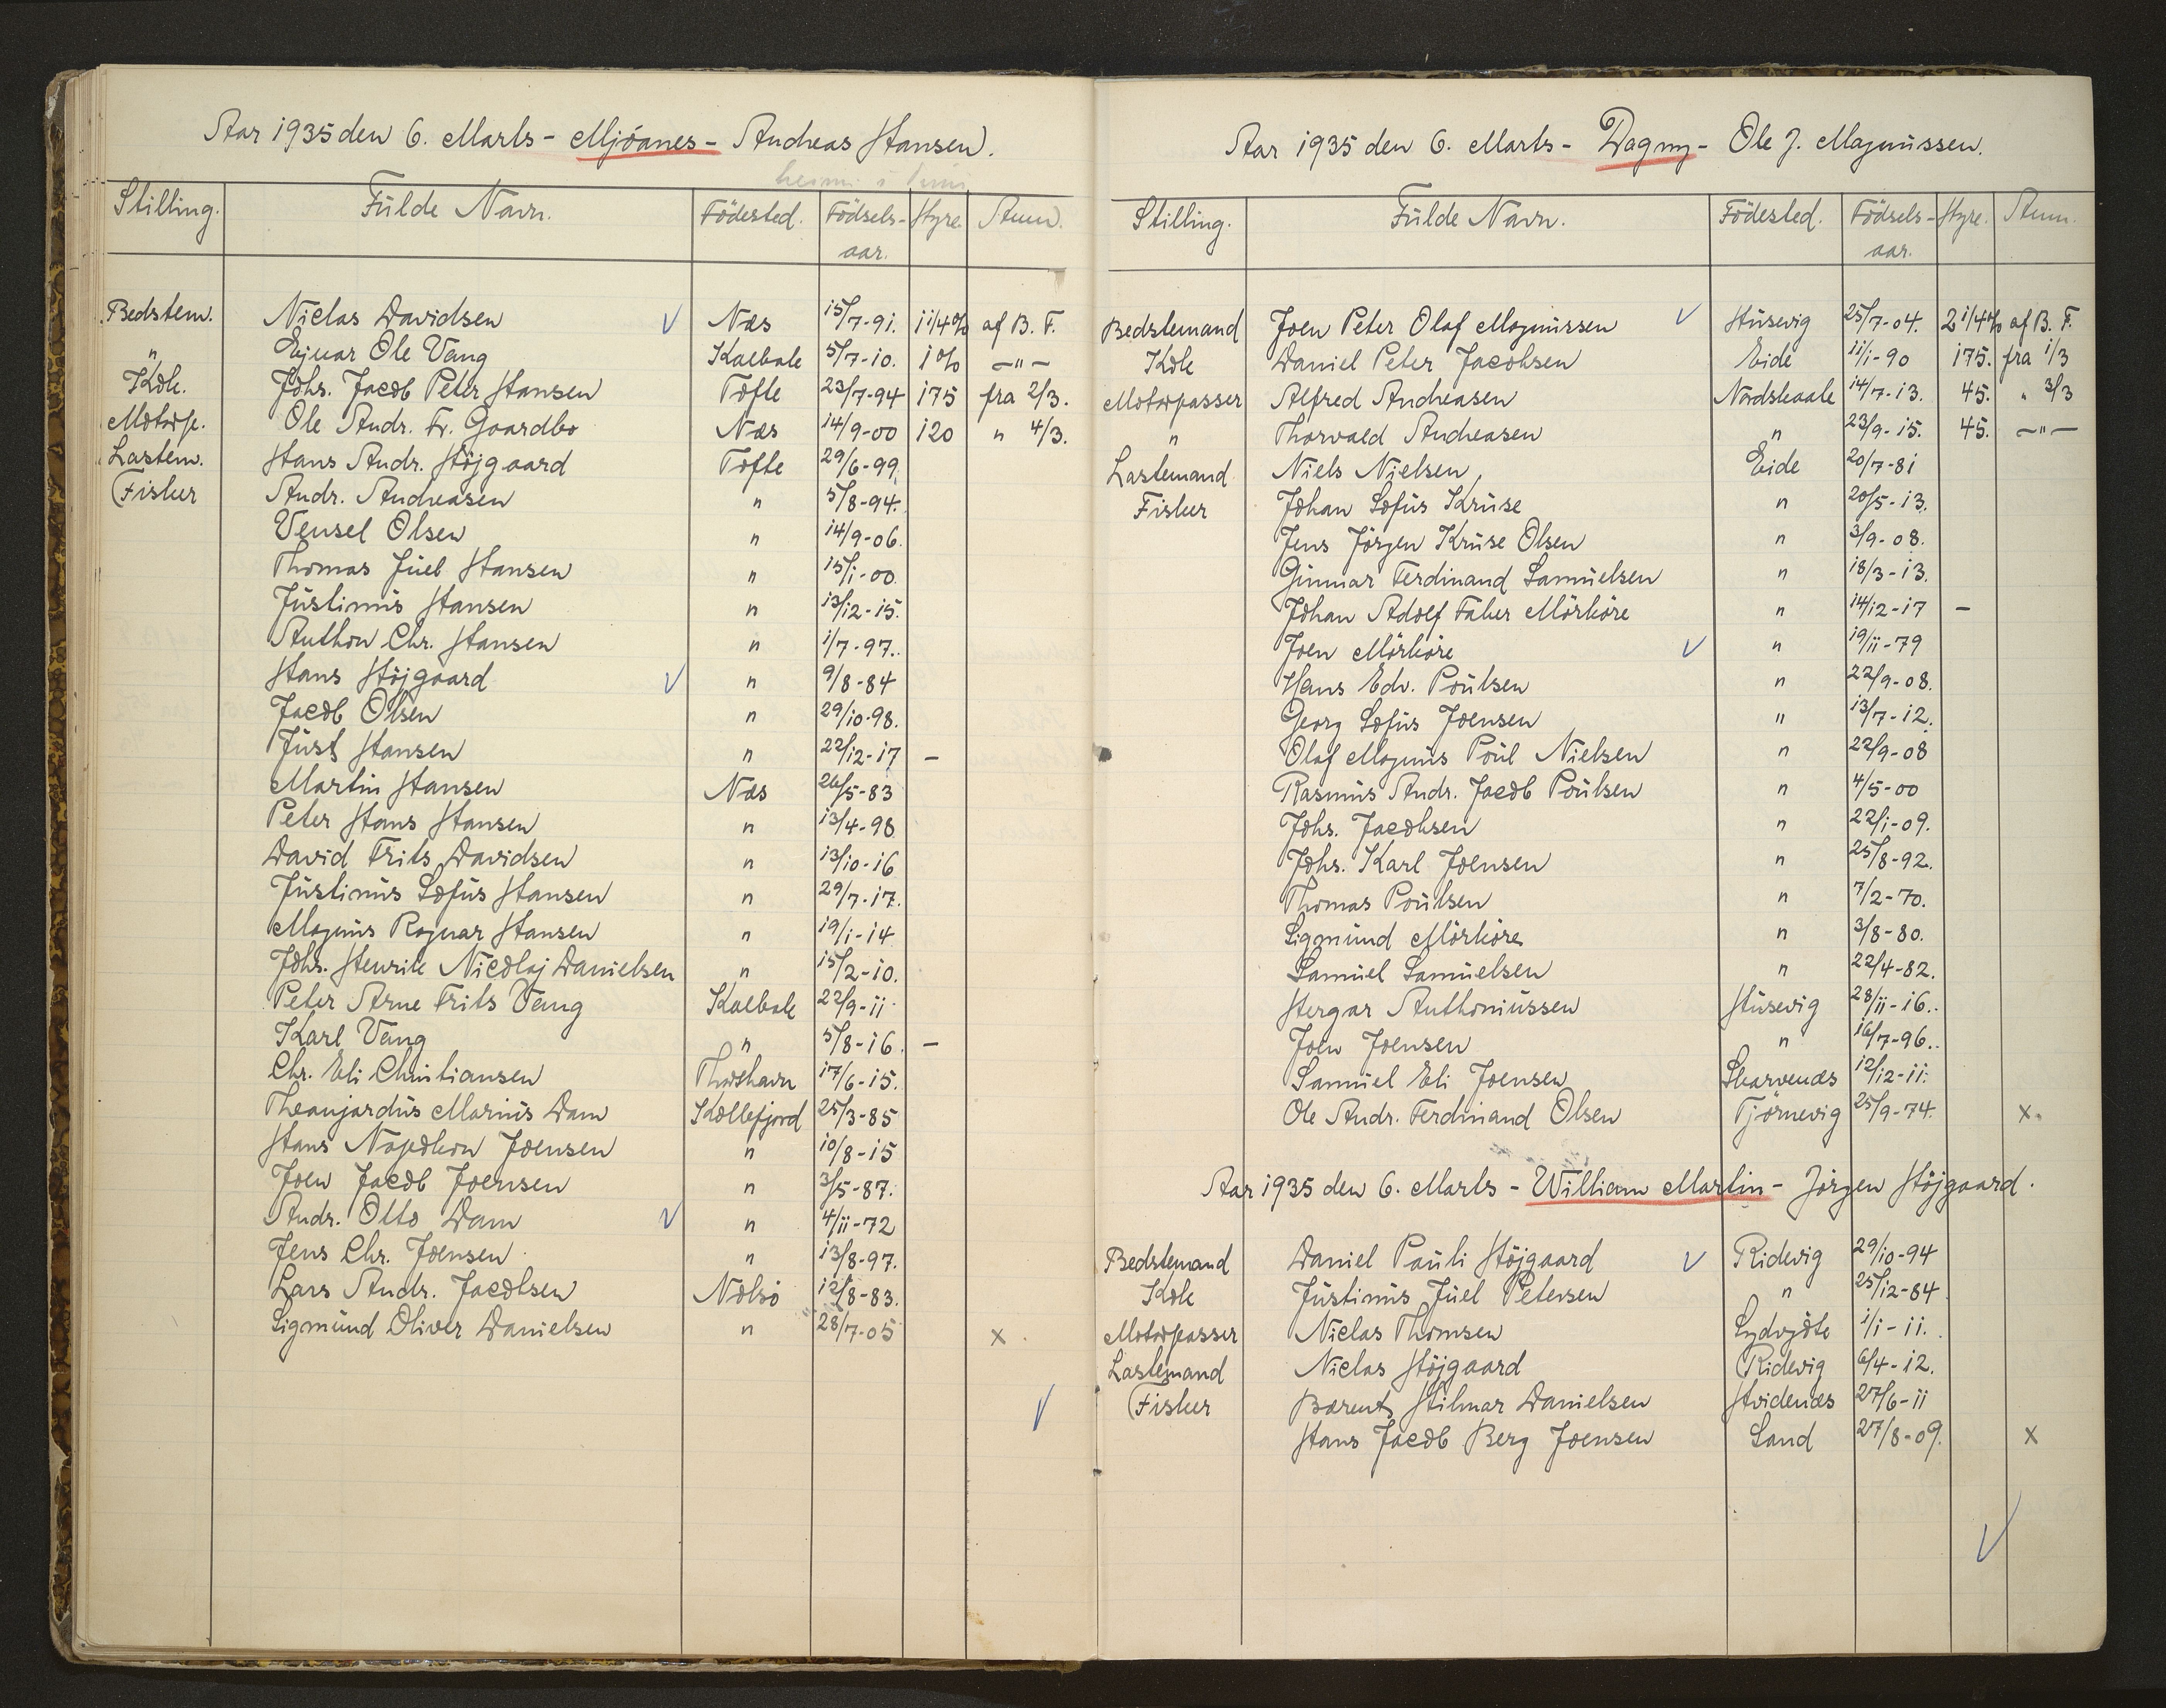 Aar 1935 den 6. Marts - Mjóanes - Andreas Hansen.
heimi i Juni
Stilling. Fulde Navn. Födested. Födsels-aar. Hyre. Anm.
Bedstem. Niclas Davidsen V Næs 15/7-91. 1 1/4% af B. F.
" Ejnar Ole Vang Kalbak 5/7-10. 1% -"-
Kok. Johs. Jacob Peter Hansen Tofte 23/7-94 175 fra 2/3.
Motorp. Ole Andr. Fr. Gaardbo Næs 14/9-00 120 " 4/3.
Lastem. Hans Andr. Höjgaard Tofte 29/6-99.
Fisker Andr. Andreasen " 5/8-94.
Vensel Olsen " 14/9-06.
Thomas Juel Hansen " 15/1-00.
Justinus Hansen " 13/12-15.
Anthon Chr. Hansen " 1/7-97.
Hans Höjgaard V " 9/8-84
Jacob Olsen " 29/10-98.
Just Hansen " 22/12-17 -
Martin Hansen Næs 26/5-83
Peter Hans Hansen " 13/4-98
David Frits Davidsen " 13/10-16
Justinus Sofus Hansen " 29/7-17.
Magnus Ragnar Hansen " 19/1-14
Johs. Henrik Nicolaj Danielsen " 15/2-10.
Peter Arne Frits Vang Kalbak 22/9-11.
Karl Vang " 5/8-16. -
Chr. Eli Christiansen Thorshavn 17/6-15.
Theangardus Marius Dam Kollefjord 25/3-85
Hans Napoleon Joensen " 10/8-15
Joen Jacob Joensen " 3/5-87.
Andr. Otto Dam V " 4/11-72
Jens Chr. Joensen " 13/8-97.
Lars Andr. Jacobsen Nolsö 12/8-83.
Sigmund Oliver Danielsen " 28/7-05 x.
V
Aar 1935 den 6. Marts - Dagny - Ole J. Magnussen.
Stilling. Fulde Navn. Födested. Födsels-aar. Hyre. Anm.
Bedstemand Joen Peter Olaf Magnussen V Husevig 25/7-04. 2 1/4% af B. F.
Kok Daniel Peter Jacobsen Eide 11/1-90 175. fra 1/3
Motorpasser Alfred Andreasen Nordskaale 14/7-13. 45. " 3/3
" Thorvald Andreasen " 23/9-15. 45. -"-
Lastemand Niels Nielsen, Eide 20/7-81
Fisker Johan Sofus Kruse " 20/5-13.
Jens Jörgen Kruse Olsen " 3/9-08.
Gunnar Ferdinand Samuelsen " 18/3-13.
Johan Adolf Faher Mörköre " 14/12-17 -
Joen Mörköre V " 19/11-79
Hans Edv. Poulsen " 22/9-08.
Georg Sofus Joensen " 13/7-12.
Olaf Magnus Poul Nielsen " 22/9-08
Rasmus Andr. Jacob Poulsen " 4/5-00
Johs. Jacobsen " 22/1-09.
Johs. Karl Joensen " 25/8-92.
Thomas Poulsen " 7/2-70.
Sigmund Mörköre " 3/8-80.
Samuel Samuelsen " 22/4-82.
Hergar Anthoniussen Husevig 28/11-16.
Joen Joensen " 16/7-96.
Samuel Eli Joensen Skarvenæs 12/12-11.
Ole Andr. Ferdinand Olsen Tjörnevig 25/9-74. x.
Aar 1935 den 6. Marts - William Martin - Jörgen Höjgaard.
Bedstemand Daniel Pauli Höjgaard V Ridevig 29/10-94
Kok Justinus Juel Petersen " 25/12-84
Motorpasser Niclas Thomsen Sydrgöte 1/1-11.
Lastemand Niclas Höjgaard Ridevig 6/4-12.
Fisker Barent Hilmar Danielsen Hvidenæs 27/6-11
Hans Jacob Berg Joensen Sand 27/8-09. x
V